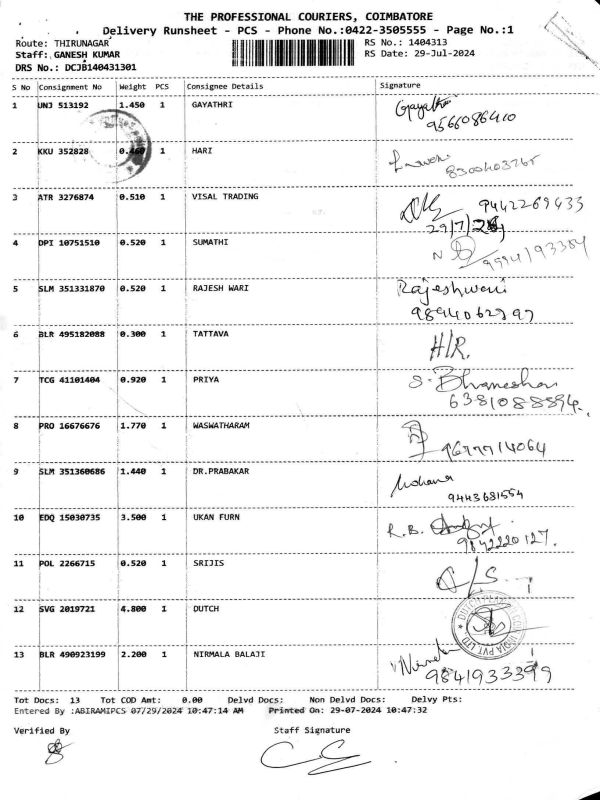 THE PROFESSIONAL COURIERS, COIMBATORE
Delivery Runsheet - PCS - Phone No.:0422-3505555 - Page No.:1
Route: THIRUNAGAR RS No.: 1404313
Staff: GANESH KUMAR RS Date: 29-Jul-2024
DRS No.: DCJB140431301
S No Consignment No Weight PCS Consignee Details Signature
1 UNJ 513192 1.450 1 GAYATHRI Gayathri
9566086410
2 KKU 352828 0.460 1 HARI
8300403265
3 ATR 3276874 0.510 1 VISAL TRADING 9442269433
29/7/24
4 DPI 10751510 0.520 1 SUMATHI
9994193384
5 SLM 351331870 0.520 1 RAJESH WARI Rajeshwari
9894062797
6 BLR 495182088 0.300 1 TATTAVA H/R.
7 TCG 41101404 0.920 1 PRIYA S. Bhuvaneshwari
6381088894.
8 PRO 16676676 1.770 1 WASWATHARAM
9677714064
9 SLM 351360686 1.440 1 DR.PRABAKAR Mohana
9443681554
10 EDQ 15030735 3.500 1 UKAN FURN R.B.
9842220127.
11 POL 2266715 0.520 1 SRIJIS C/S.
12 SVG 2019721 4.800 1 DUTCH
13 BLR 490923199 2.200 1 NIRMALA BALAJI
9841933399
Tot Docs: 13 Tot COD Amt: 0.00 Delvd Docs: Non Delvd Docs: Delvy Pts:
Entered By :ABIRAMIPCS 07/29/2024 10:47:14 AM Printed On: 29-07-2024 10:47:32
Verified By Staff Signature